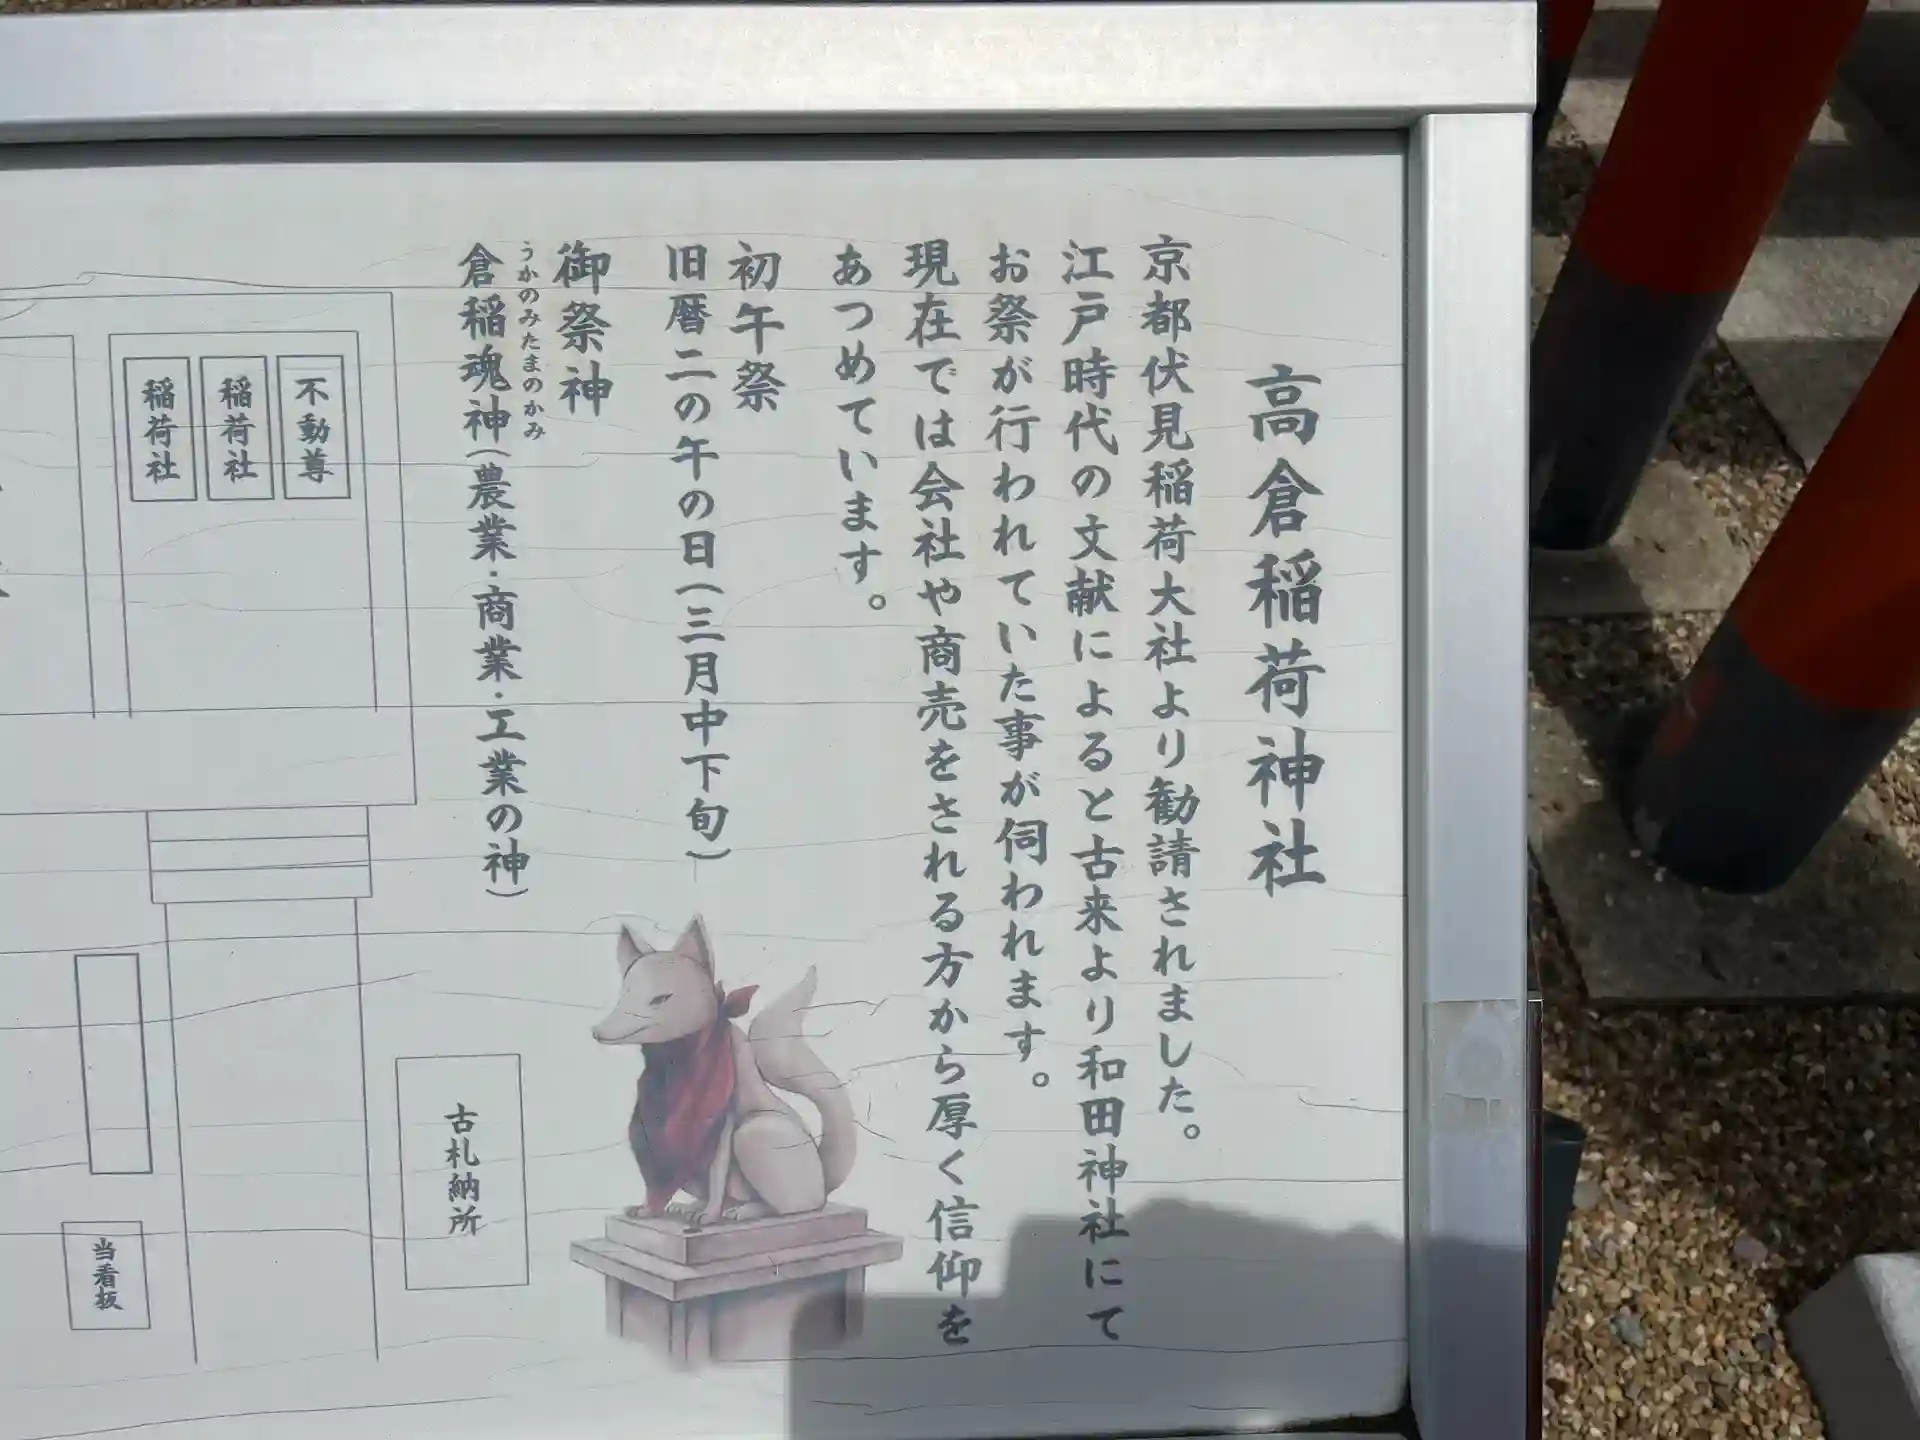 高倉稲荷神社
京都伏見稲荷大社より勧請されました。
江戸時代の文献によると古来より和田神社にて
お祭が行われていた事が伺われます。
現在では会社や商売をされる方から厚く信仰を
あつめています。
初午祭
旧暦二の午の日(三月中下旬)
御祭神
うかのみたまのかみ
倉稲魂神(農業・商業・工業の神)
不動尊
稲荷社
稲荷社
古札納所
当看板